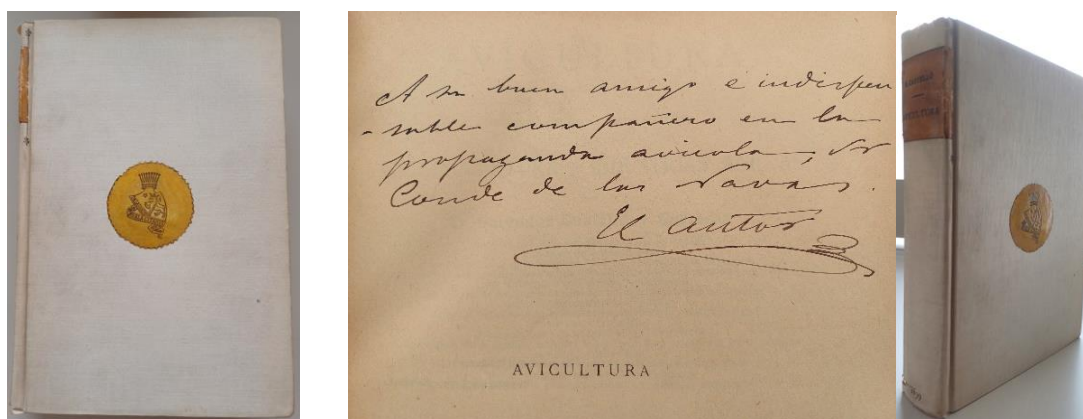 A su buen amigo e indispen
-sable compañero en la
propaganda avícola, Sr
Conde de las Navas.
El autor
AVICULTURA
AVICULTURA